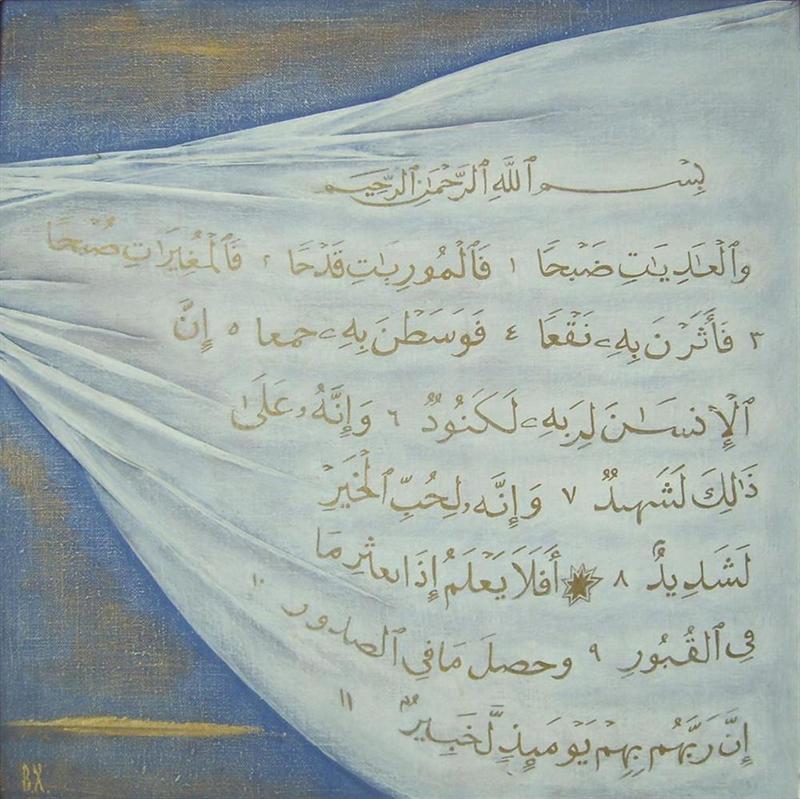 بِسْمِ ٱللَّهِ ٱلرَّحْمَٰنِ ٱلرَّحِيمِ
وَٱلْعَٰدِيَٰتِ ضَبْحًا ١ فَٱلْمُورِيَٰتِ قَدْحًا ٢ فَٱلْمُغِيرَٰتِ صُبْحًا
٣ فَأَثَرْنَ بِهِۦ نَقْعًا ٤ فَوَسَطْنَ بِهِۦ جمعا ٥ إِنَّ
ٱلْإِنسَٰنَ لِرَبِهِۦ لَكَنُودٌ ٦ وَإِنَّهُۥ عَلَىٰ
ذَٰلِكَ لَشَهِيدٌ ٧ وَإِنَّهۥ لِحُبِّ ٱلْخَيْرِ
لَشَدِيدٌ ٨ أَفَلَا يَعْلَمُ إِذَا بعثِر مَا
فِى ٱلقُبُورِ ٩ وحصلَ مَا فِي ٱلصدور ١٠
إِنَّ رَبَّهُم بِهِمْ يَوْمَئِذٍ لَّخَبِيرٌۢ ١١
B.X.